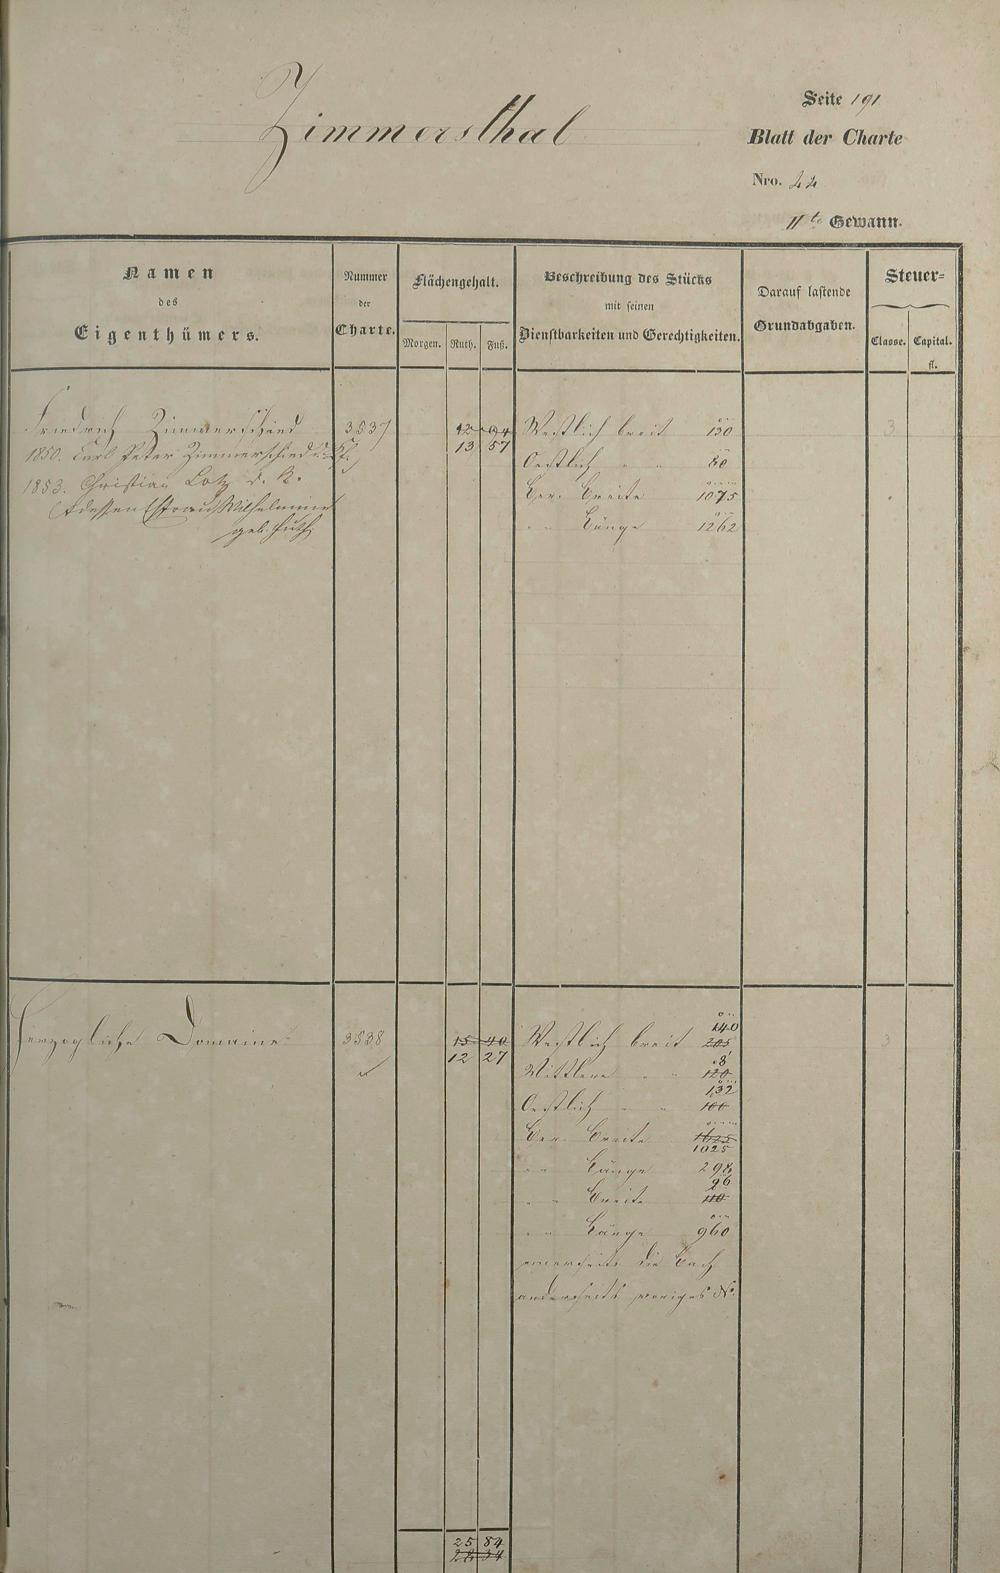 Zimmersthal
Seite 191
Blatt der Charte
Nro. 44
11te Gewann.
Namen
des
Eigenthümers.
Nummer
der
Charte.
Flächengehalt.
Morgen. Ruth. Fuß.
Beschreibung des Stücks
mit seinen
Dienstbarkeiten und Gerechtigkeiten.
Darauf lastende
Grundabgaben.
Steuer=
Classe. Capital.
fl.
Friedrich Zimmerschied 3537 12 94 Westlich breit 130
1850. Carl Peter Zimmerschied 13 57
Oestlich " " 80
1853. Christian Lotz d. K. Ger. Breite 1075
& dessen Ehefrau Wilhelmine
" " Länge 1262
geb. Huth
Herzogliche Domaine 3538 15 40 Westlich breit 205 140 3
12 27
Mittlere " " 120
Oestlich " " 100 132
Ger. Breite 1625
1025
" " Länge 298
" " Breite 110 96
" " Länge 960
einerseits die Bach
anderseits voriges N.
25 84
28 34